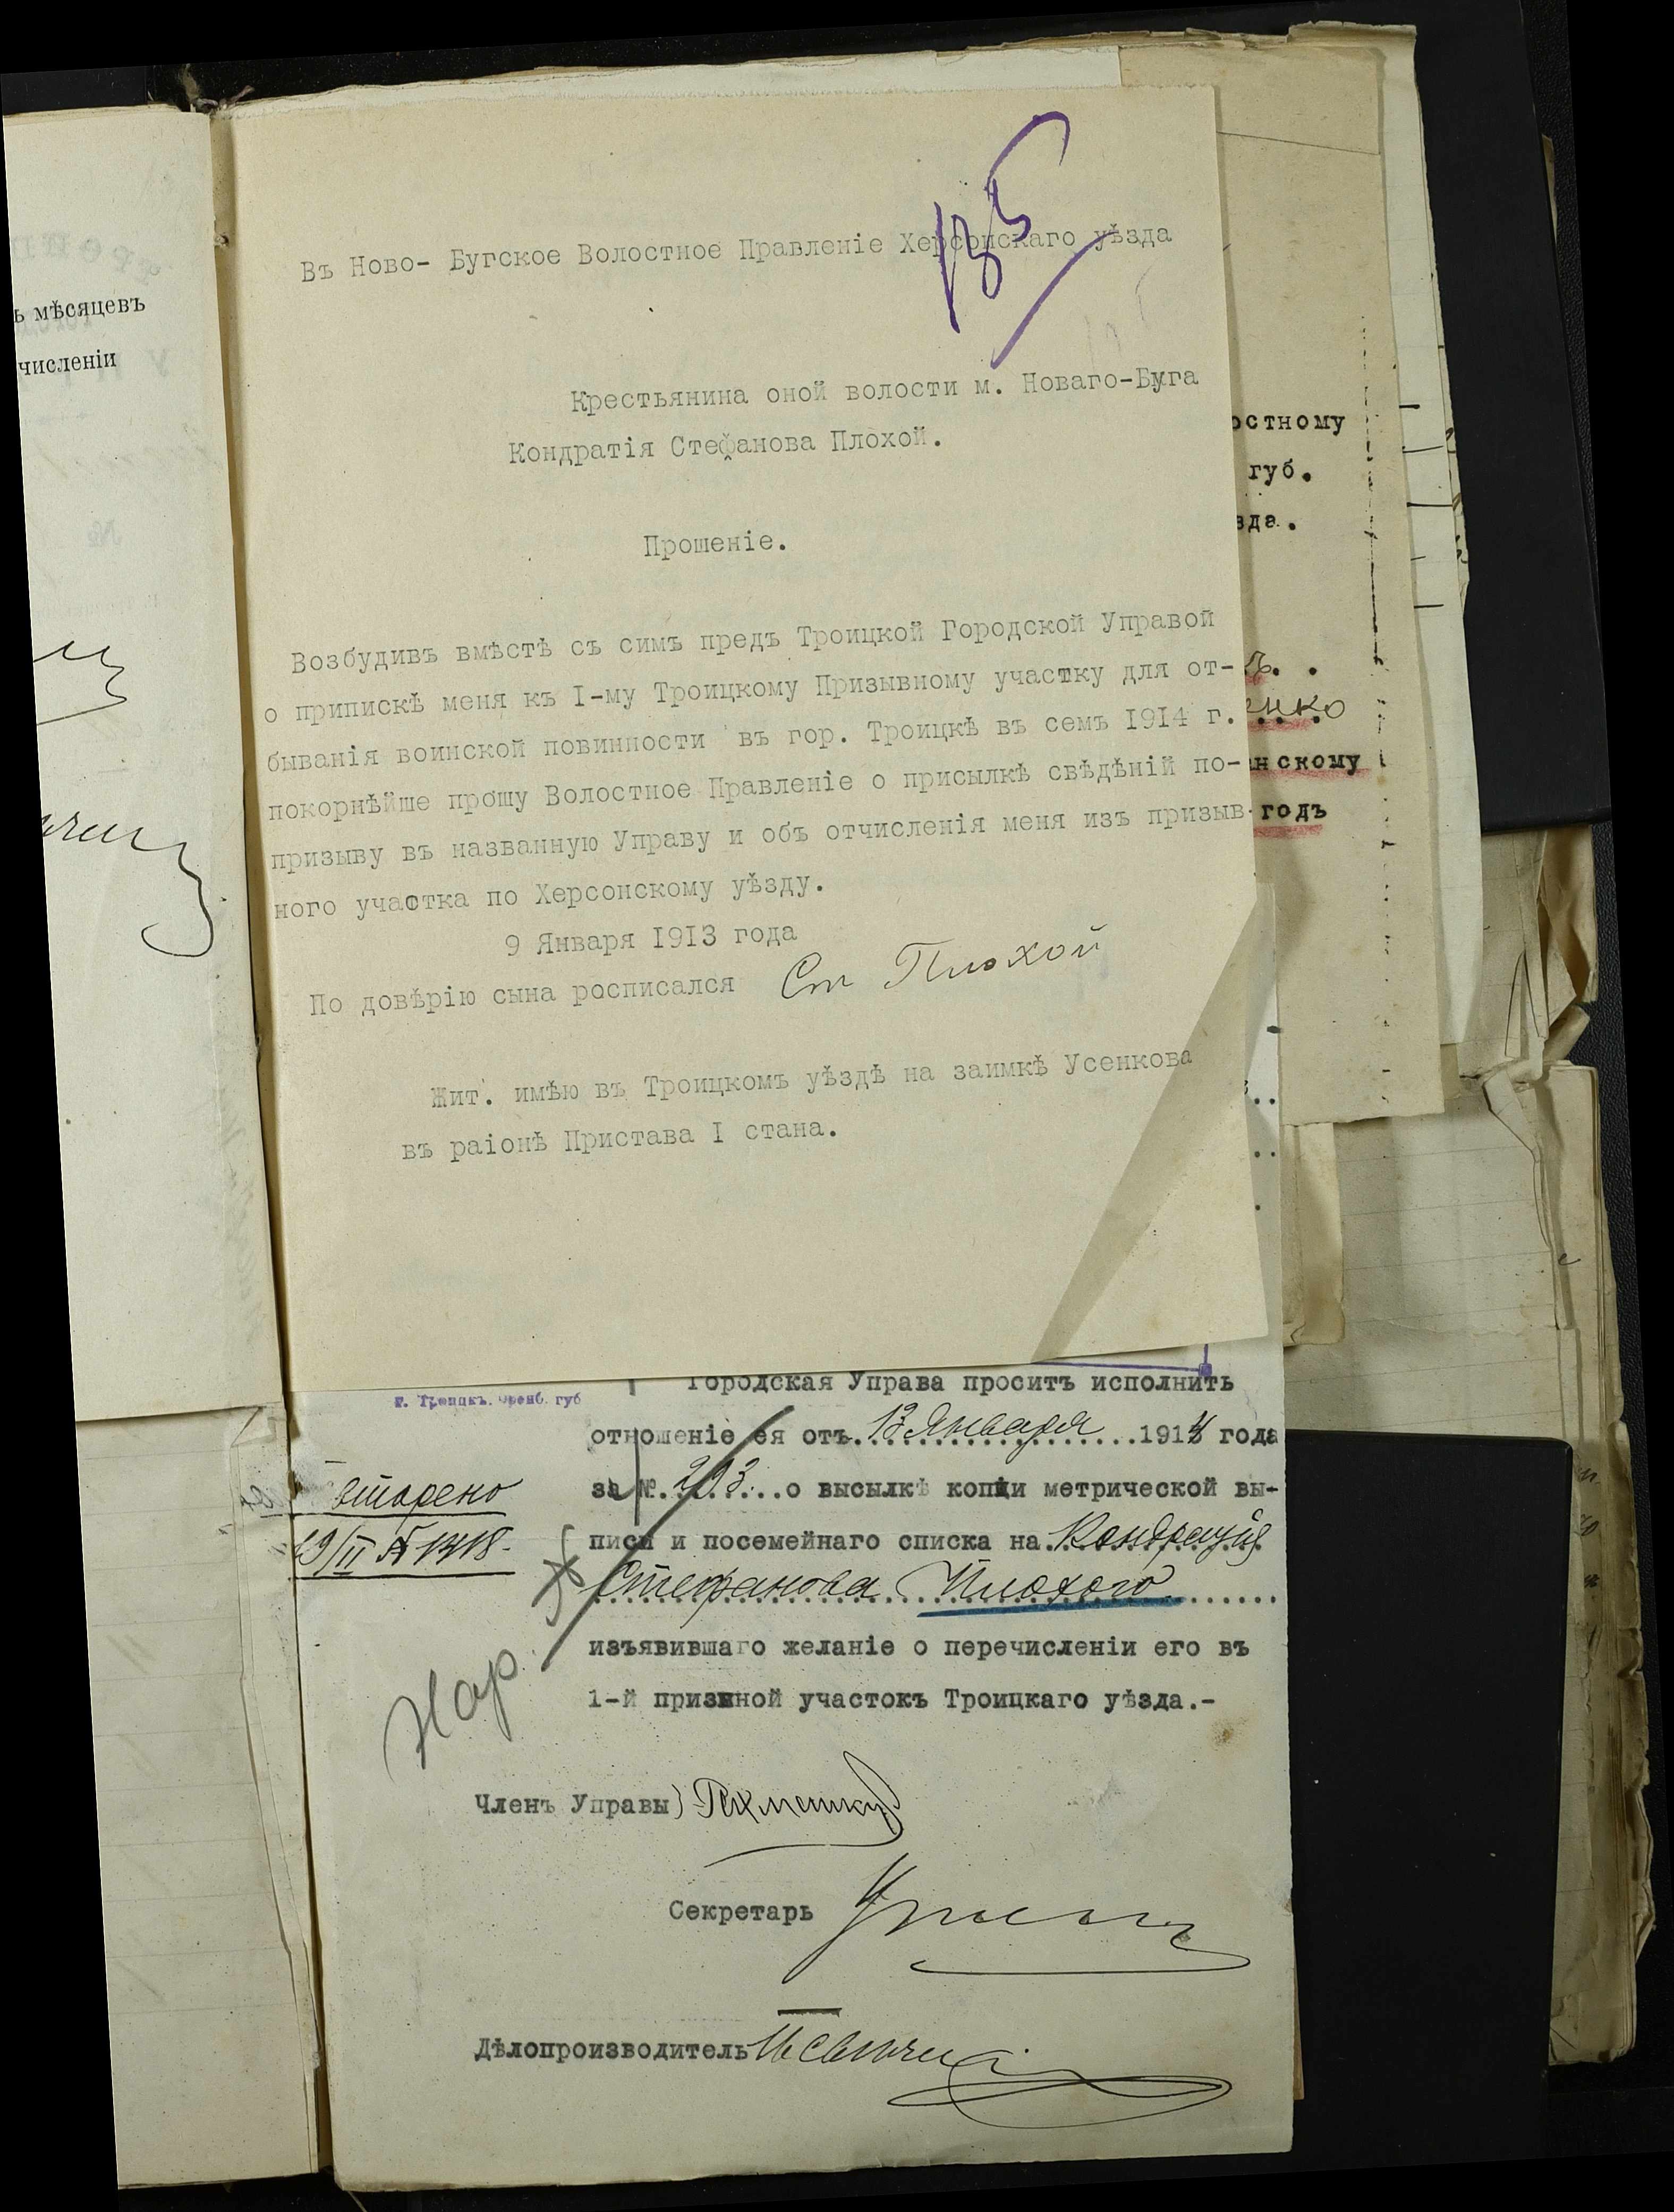 ъ мѣсяцевъ
численіи
195
Въ Ново- Бугское Волостное Правленіе Херсонскаго уѣзда
Крестьянина оной волости м. Новаго-Буга
Кондратія Стефанова Плохой.
Прошеніе.
Возбудивъ вмѣстѣ съ симъ предъ Троицкой Городской Управой
о припискѣ меня къ I-му Троицкому Призывному участку для от-
быванія воинской повинности въ гор. Троицкѣ въ семъ 1914 г.
покорнѣйше прошу Волостное Правленіе о присылкѣ свѣдѣній по-
призыву въ названную Управу и объ отчисленія меня изъ призыв-
ного участка по Херсонскому уѣзду.
9 Января 1913 года
По довѣрію сына росписался Ст Плохой
Жит. имѣю въ Троицкомъ уѣздѣ на заимкѣ Усенкова
въ раіонѣ Пристава I стана.
остному
губ.
зда.
енко
нскому
годъ
г. Троицкъ. Оренб. губ
Городская Управа проситъ исполнить
отношеніе ея отъ 13 Января 1914 года
за № 293 о высылкѣ копіи метрической вы-
писи и посемейнаго списка на Кондратія
Стефанова Плохого
изъявившаго желаніе о перечисленіи его въ
1-й призывной участокъ Троицкаго уѣзда.-
19/II № 1418.
Нар.
Членъ Управы
Секретарь
Дѣлопроизводитель